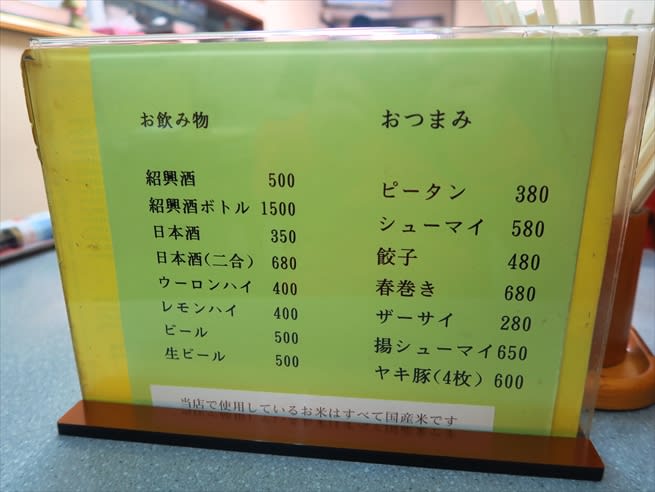 お飲み物
紹興酒 500
紹興酒ボトル 1500
日本酒 350
日本酒(二合) 680
ウーロンハイ 400
レモンハイ 400
ビール 500
生ビール 500
おつまみ
ピータン 380
シューマイ 580
餃子 480
春巻き 680
ザーサイ 280
揚シューマイ 650
ヤキ豚(4枚) 600
当店で使用しているお米はすべて国産米です